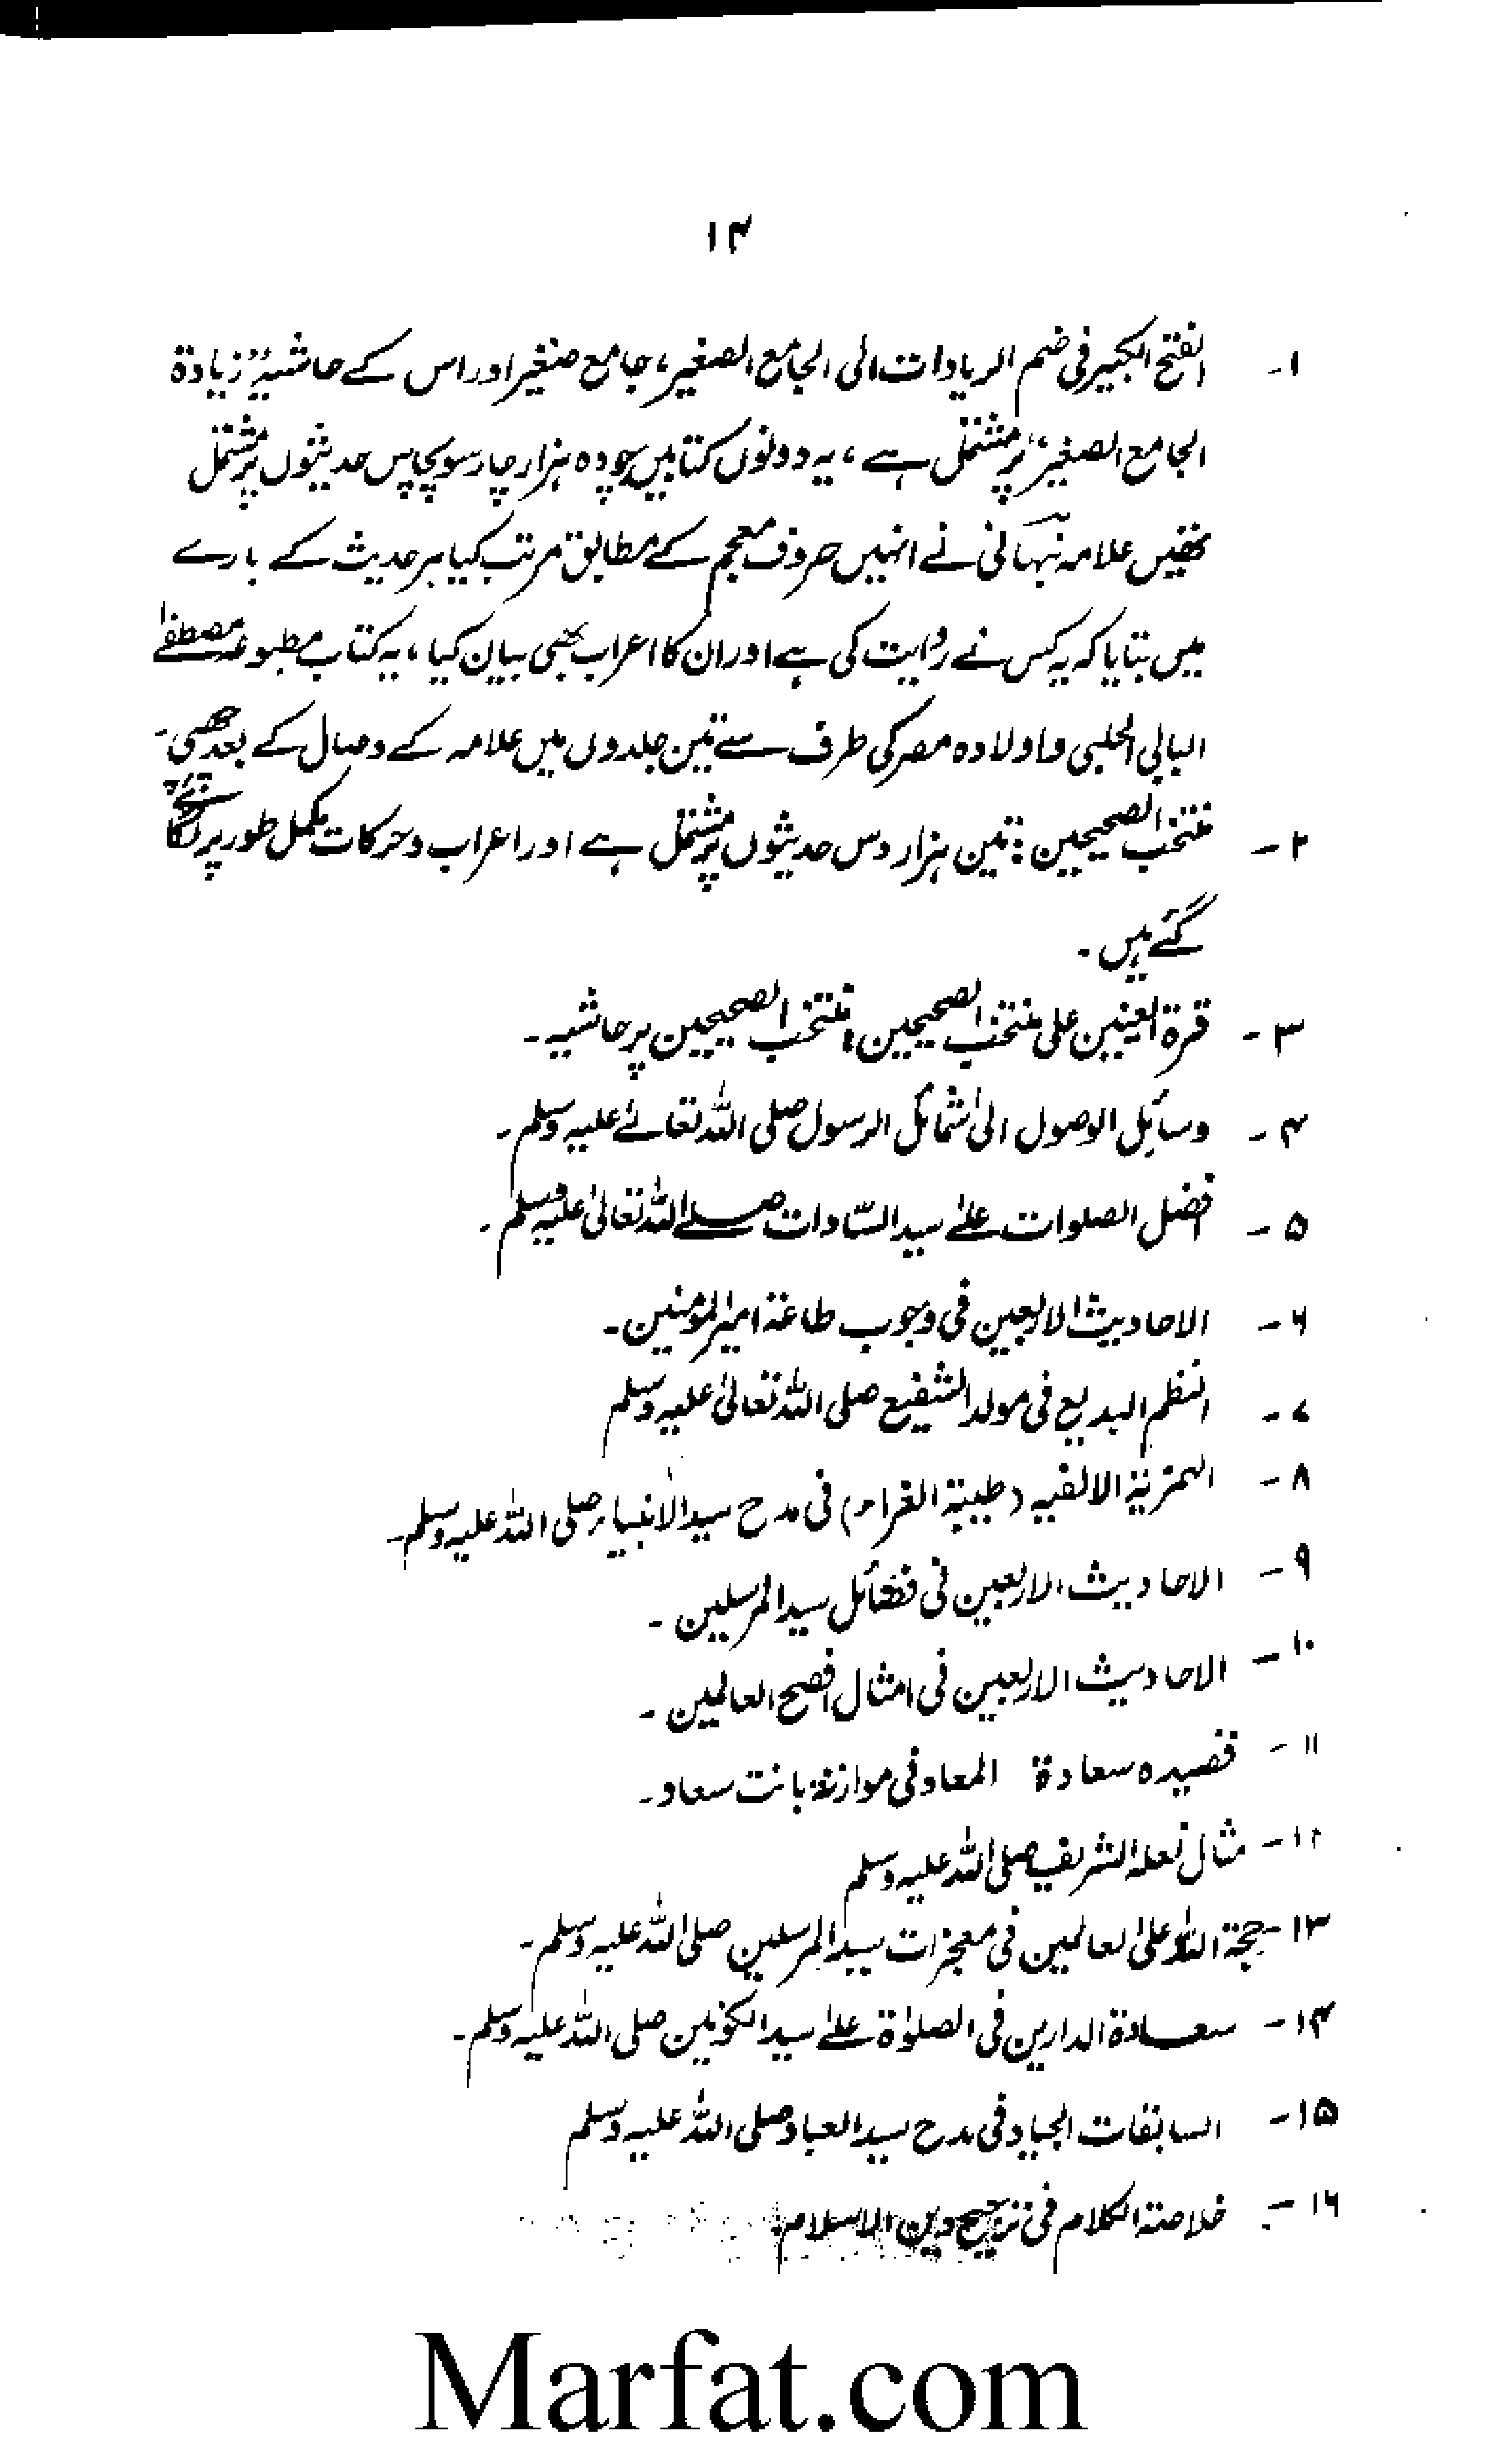 ۱۴
۱۔ الفتح الکبیر فی ضم الزیادات الی الجامع الصغیر، جامع صغیر اور اس کے حاشیہ "زیادۃ
الجامع الصغیر" پر مشتمل ہے، یہ دونوں کتابیں چودہ ہزار چار سو پچاس حدیثوں پر مشتمل
تھیں علامہ نبہانی نے انہیں حروف معجم کے مطابق مرتب کیا ہر حدیث کے بارے
میں بتایا کہ یہ کس نے روایت کی ہے اور ان کا اعراب بھی بیان کیا، یہ کتاب مطبوعہ مصطفٰے
البابی الحلبی واولادہ مصر کی طرف سے تین جلدوں میں علامہ کے وصال کے بعد چھپی۔
۲۔ منتخب الصحیحین: تین ہزار دس حدیثوں پر مشتمل ہے اور اعراب و حرکات مکمل طور پر لگائے
گئے ہیں۔
۳۔ قرۃ العینین علی منتخب الصحیحین: منتخب الصحیحین پر حاشیہ۔
۴۔ وسائل الوصول الیٰ شمائل الرسول صلی اللہ تعالےٰ علیہ وسلم۔
۵۔ افضل الصلوات علےٰ سید السّادات صلے اللہ تعالیٰ علیہ وسلم۔
۶۔ الاحادیث الاربعین فی وجوب طاعۃ امیر المؤمنین۔
۷۔ النظم البدیع فی مولد الشفیع صلی اللہ تعالیٰ علیہ وسلم
۸۔ الہمزیۃ الالفیہ (طیبۃ الغراء) فی مدح سید الانبیاء صلی اللہ علیہ وسلم۔
۹۔ الاحادیث الاربعین فی فضائل سید المرسلین۔
۱۰۔ الاحادیث الاربعین فی امثال افصح العالمین۔
۱۱۔ قصیدہ سعادۃ المعاد فی موازنۃ بانت سعاد۔
۱۲۔ مثال نعلہ الشریف صلی اللہ علیہ وسلم
۱۳۔ حجۃ اللہ علی العالمین فی معجزات سید المرسلین صلی اللہ علیہ وسلم۔
۱۴۔ سعادۃ الدارین فی الصلوٰۃ علےٰ سید الکونین صلی اللہ علیہ وسلم۔
۱۵۔ السابقات الجیاد فی مدح سید العباد صلی اللہ علیہ وسلم
۱۶۔ خلاصۃ الکلام فی ترجیح دین الاسلام
Marfat.com